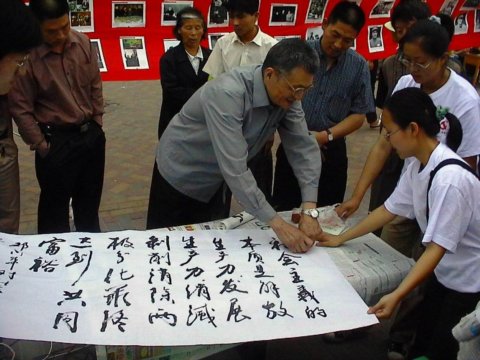 社会主义的
本质是解放
生产力发展
生产力消灭
剥削消除两
极分化最终
达到共同
富裕